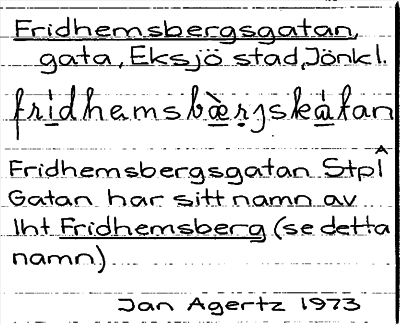 Fridhemsbergsgatan,
gata, Eksjö stad, Jönk l.
fridhemsbæ̀rjskátan
Fridhemsbergsgatan Stpl
Gatan har sitt namn av
lht Fridhemsberg (se detta
namn)
Jan Agertz 1973